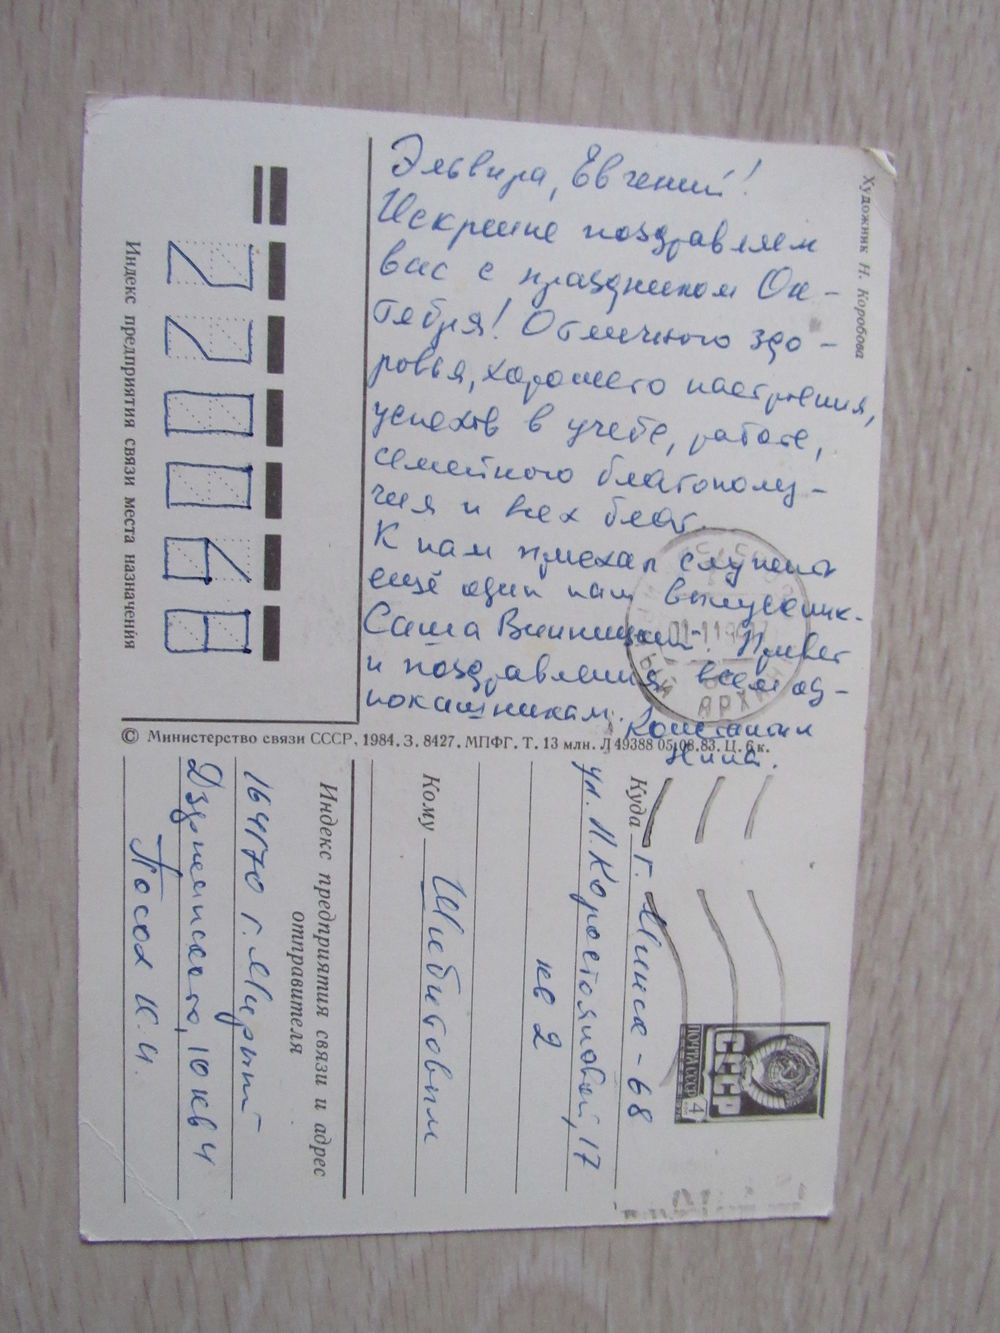 Эльвира, Евгений!
Искренне поздравляем
вас с праздником Ок-
тября! Отличного здо-
ровья, хорошего настроения,
успехов в учебе, работе,
семейного благополу-
чия и всех благ.
К нам приехал служить
ещё один наш выпускник.
Саша Винницкий. Привет
и поздравления всем од-
нокашникам. Константин
Нина.
Художник Н. Коробова
Индекс предприятия связи места назначения
220068
© Министерство связи СССР, 1984. З. 8427. МПФГ. Т. 13 млн. Л 49388 05.08.83. Ц. 6 к.
Куда г. Минск - 68
ул. Н. Коростояновой, 17
кв 2
Кому Шебитовым
Индекс предприятия связи и адрес
отправителя
164170 г. Мирный
Дзержинского, 10 кв 4
Посох К. И.
СССР
ПОЧТА СССР
4
АРХАН